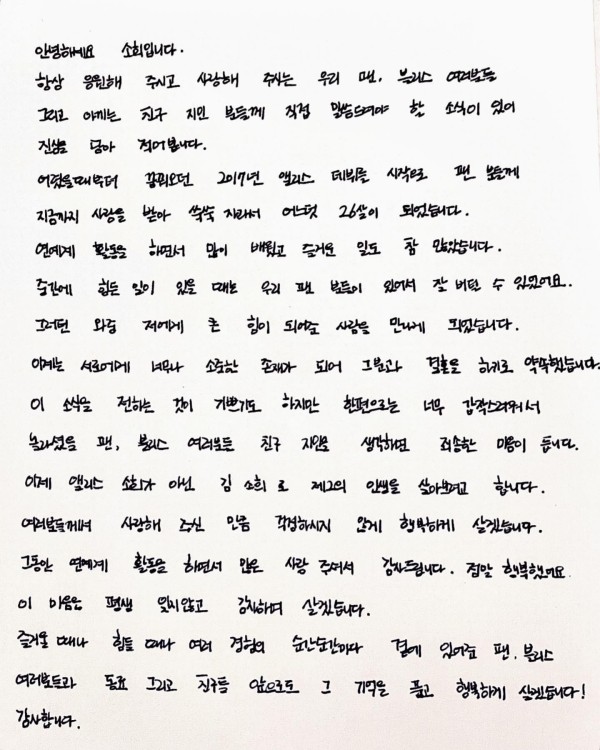 안녕하세요 소희입니다.
항상 응원해 주시고 사랑해 주시는 우리 팬, 블리스 여러분들
그리고 아끼는 친구 지인 분들께 직접 말씀드려야 할 소식이 있어
진심을 담아 적어봅니다.
어렸을때부터 꿈꿔오던 2017년 앨리스 데뷔를 시작으로 팬 분들께
지금까지 사랑을 받아 쑥쑥 자라서 어느덧 26살이 되었습니다.
연예계 활동을 하면서 많이 배웠고 즐거운 일도 참 많았습니다.
중간에 힘든 일이 있을 때는 우리 팬 분들이 있어서 잘 버틸 수 있었어요.
그러던 와중 저에게 큰 힘이 되어준 사람을 만나게 되었습니다.
이제는 서로에게 너무나 소중한 존재가 되어 그분과 결혼을 하기로 약속했습니다.
이 소식을 전하는 것이 기쁘기도 하지만 한편으로는 너무 갑작스러워서
놀라셨을 팬, 블리스 여러분들 친구 지인을 생각하면 죄송한 마음이 듭니다.
이제 앨리스 소희가 아닌 김소희로 제2의 인생을 살아보려고 합니다.
여러분들께서 사랑해 주신 만큼 걱정하시지 않게 행복하게 살겠습니다.
그동안 연예계 활동을 하면서 많은 사랑 주셔서 감사드립니다. 정말 행복했어요
이 마음은 평생 잊지않고 감사하며 살겠습니다.
즐거울 때나 힘들 때나 여러 경험의 순간순간마다 곁에 있어준 팬, 블리스
여러분들과 동료 그리고 친구들 앞으로도 그 기억을 품고 행복하게 살겠습니다!
감사합니다.